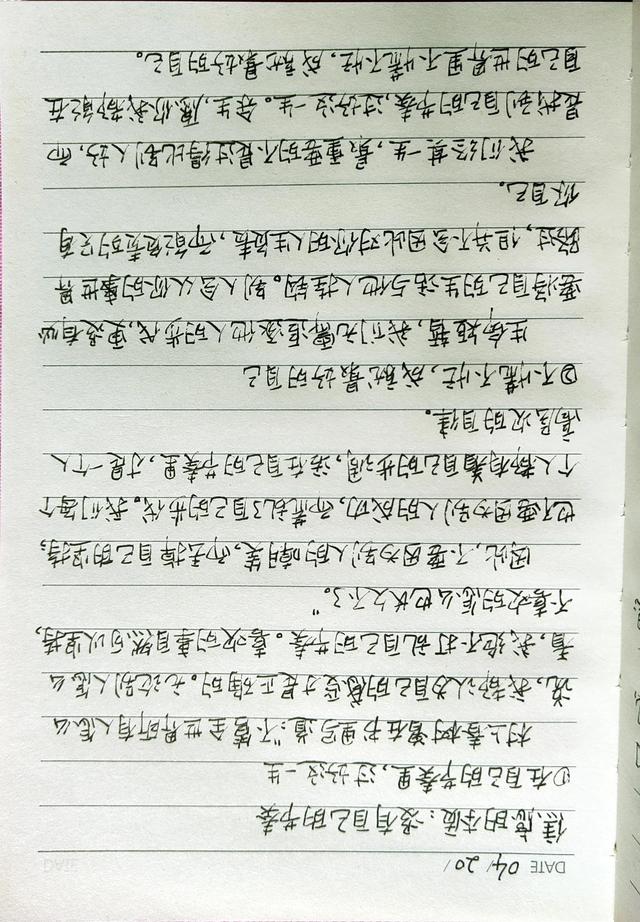 DATE 04/20/
焦虑的本质：没有自己的节奏
①在自己的节奏里，过好这一生
村上春树曾在书里写道：“不管全世界所有人怎么
说，我都认为自己的感受才是正确的。无论别人怎么
看，我绝不打乱自己的节奏。喜欢的事自然可以坚持，
不喜欢的怎么也长久不了。”
因此，不要因为别人的嘲笑，而丢掉自己的坚持；
也不要因为别人的成功，而慌乱了自己的步伐。我们每个
个人都有着自己的步调，活在自己的节奏里，才是一个人
高层次的自律。
②不慌不忙，成就最好的自己
生命短暂，我们无需追逐他人的步伐，更没有必
要将自己的生活与他人挂钩。别人会从你的事世界
路过，但并不会因此对你的人生负责，而能负责的只有
你自己。
我们经其一生，最重要的不是过得比别人好，而
是找到自己的节奏，过好这一生。余生，愿你我都能在
自己的世界里不慌不忙，成就最好的自己。
DATE